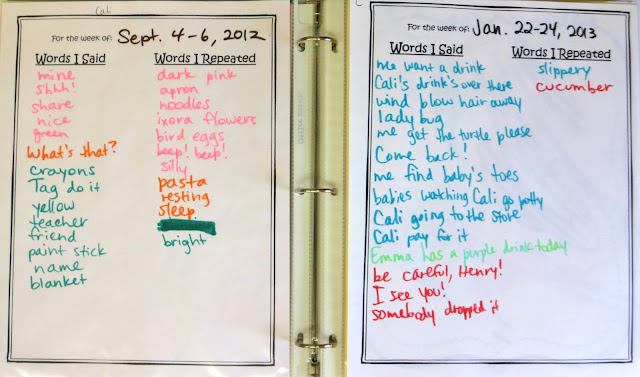 Cali
For the week of: Sept. 4-6, 2012
Words I Said
mine
shhh!
share
nice
green
What's that?
crayons
Tag do it
yellow
teacher
friend
paint stick
name
blanket
Words I Repeated
dark pink
apron
noodles
ixora flowers
bird eggs
beep! beep!
silly
pasta
resting
sleep
bright
For the week of: Jan. 22-24, 2013
Words I Said
me want a drink
Cali's drink's over there
wind blow hair away
lady bug
me get the turtle please
Come back!
me find baby's toes
babies watching Cali go potty
Cali going to the store
Cali pay for it
Emma has a purple drink today
be careful, Henry!
I see you!
somebody dropped it
Words I Repeated
slippery
cucumber